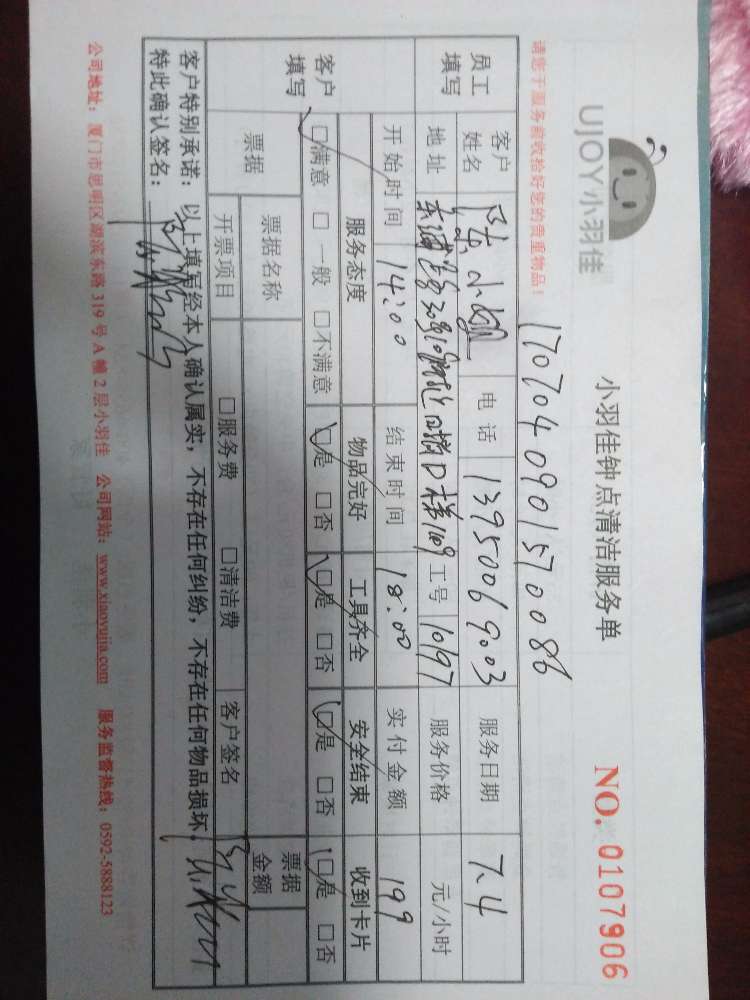 UJOY小羽佳
小羽佳钟点清洁服务单
NO. 0107906
请您于服务前收拾好您的贵重物品!
1707040901570086
员工填写 客户姓名 陈小姐 电话 13950069003 服务日期 7.4
地址 工号 10197 服务价格 元/小时
开始时间 14:00 结束时间 18:00 实付金额 199
客户填写 服务态度 物品完好 工具齐全 安全结束 收到卡片
☐满意 ☐一般 ☐不满意 ☐是 ☐否 ☐是 ☐否 ☐是 ☐否 ☐是 ☐否
票据 票据名称 票据金额
开票项目 ☐服务费 ☐清洁费 客户签名
客户特别承诺:以上填写经本人确认属实,不存在任何纠纷,不存在任何物品损坏,
特此确认签名:
公司地址:厦门市思明区湖滨东路319号A幢2层小羽佳 公司网站:www.xiaoyujia.com 服务监督热线:0592-5888123